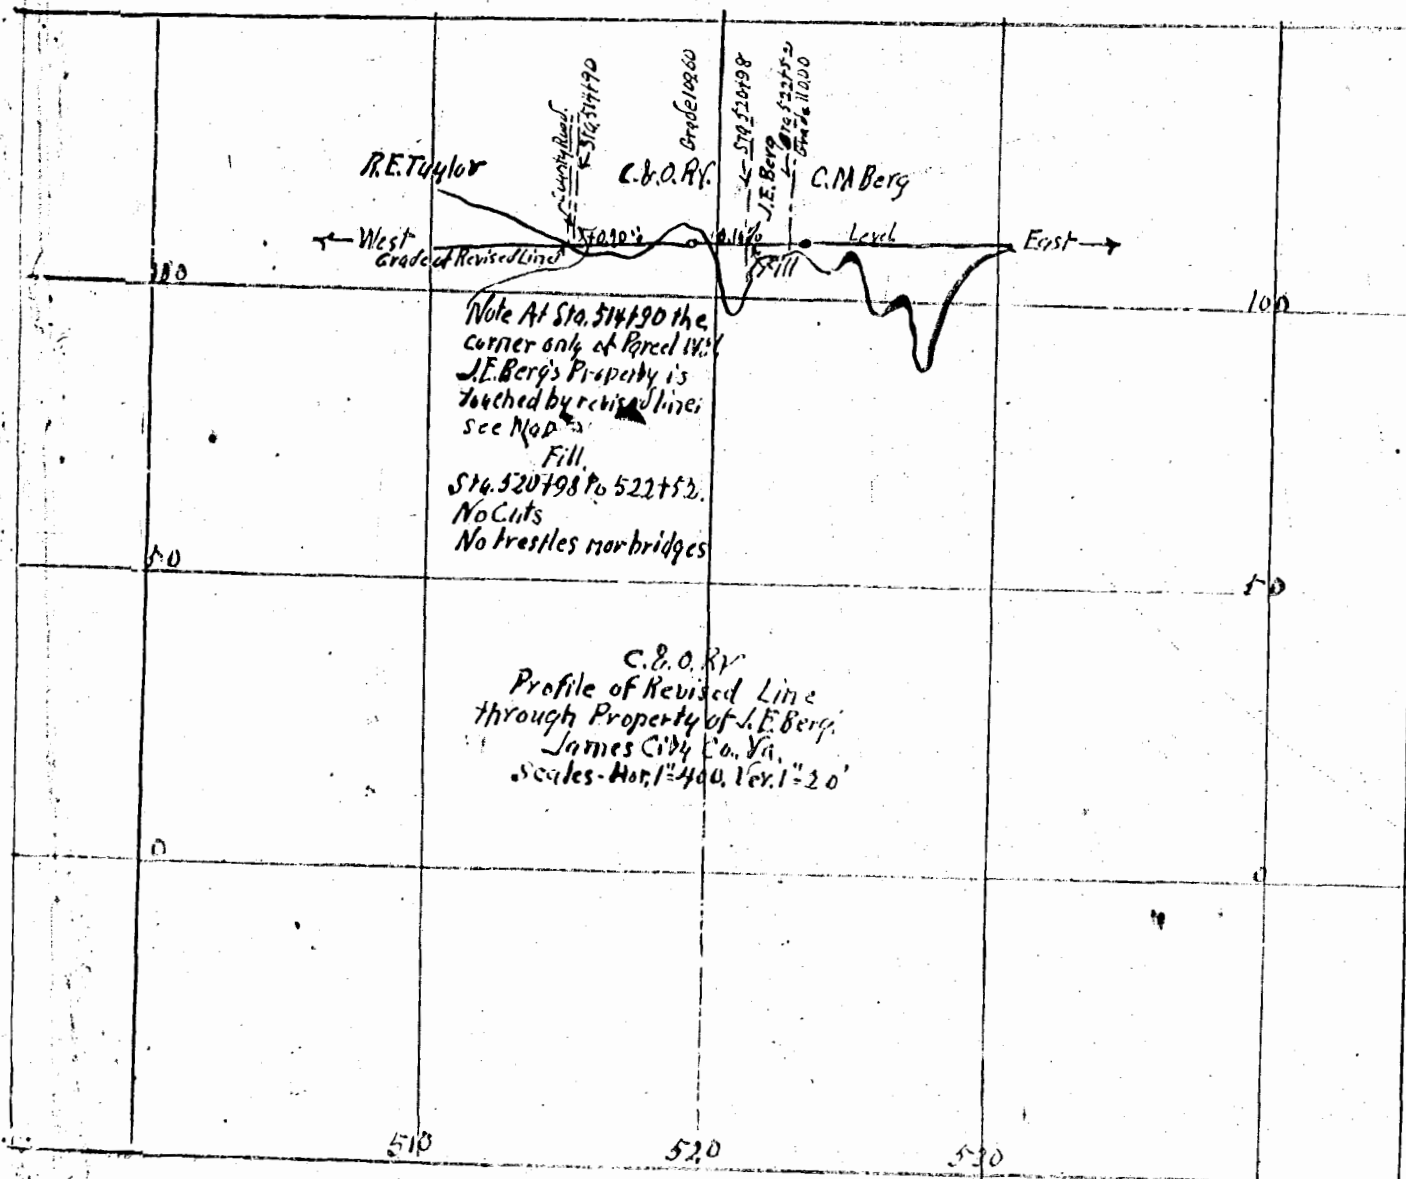 County Road.
Sta. 514+90
Grade 109.60
Sta. 520+98
J.E. Berg
Sta. 522+52
Grade 110.00
R.E. Taylor
C.&O.Ry.
C.M Berg
West
+0.10%
Level
East
Grade of Revised Line
Fill
100
100
Note At Sta. 514+90 the
corner only of Parcel
J.E. Berg's Property is
touched by revised line;
see Map
Fill.
Sta. 520+98 to 522+52.
No Cuts
No trestles nor bridges
50
50
C.&.O. Ry
Profile of Revised Line
through Property of J.E. Berg.
James City Co., Va.
Scales-Hor. 1"=400. Ver. 1"=20'
0
0
510
520
530